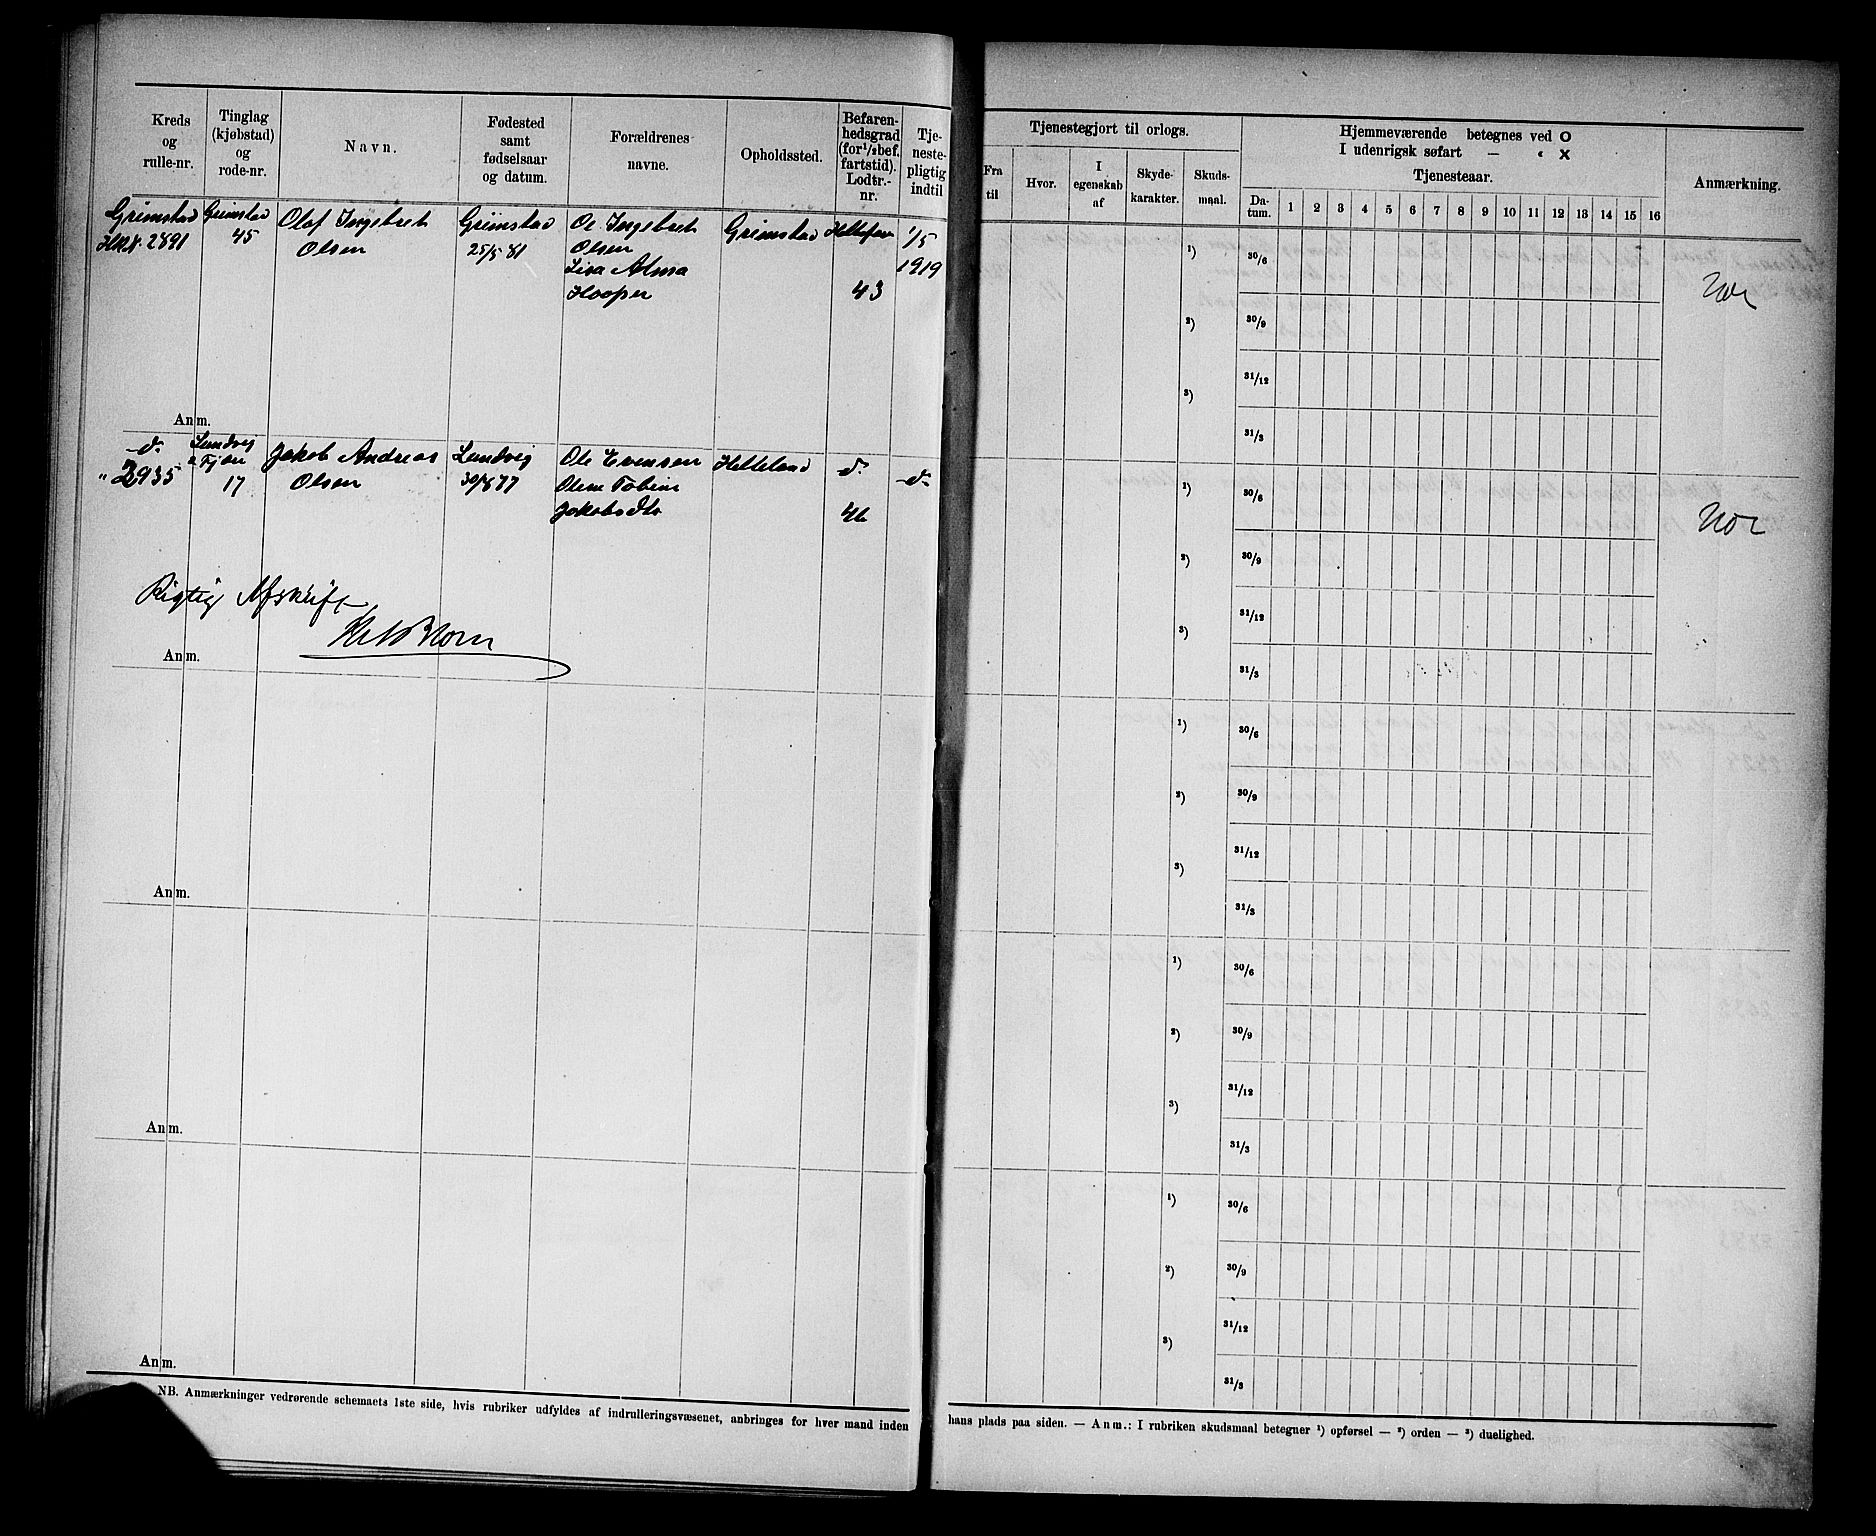 Kreds
og
rulle-nr.
Tinglag
(kjøbstad)
og
rode-nr.
Navn.
Fødested
samt
fødselsaar
og datum.
Forældrenes
navne.
Opholdssted.
Befaren-
hedsgrad
(for 1/2 bef.
fartstid).
Lodtr.-
nr.
Tje-
neste-
pligtig
indtil
Grimstad
2891
Grimstad
45
Olaf Ingebret
Olsen
Grimstad
25/5 81
Ol. Ingebret
Olsen
Lisa Alma
Hooper
Grimstad
43
1/5
1919
Anm.
d.
" 2935
Lundvig
17
Jakob Andreas
Olsen
Lundvig
Ole Evensen
Olene Tobine
Jakobsdtr
Helleland
d.
46
d.
Rigtig Afskrift
Anm.
Anm.
Anm.
Anm.
NB. Anmærkninger vedrørende schemaets 1ste side, hvis rubriker udfyldes af indrulleringsvæsenet, anbringes for hver mand inden
Tjenestegjort til orlogs.
Fra
til
Hvor.
I
egenskab
af
Skyde-
karakter.
Skuds-
maal.
Hjemmeværende betegnes ved O
I udenrigsk søfart — " X
Tjenesteaar.
Da-
tum. 1 2 3 4 5 6 7 8 9 10 11 12 13 14 15 16
Anmærkning.
1)
2)
3)
30/6
30/9
31/12
31/3
1)
2)
3)
30/6
30/9
31/12
31/3
1)
2)
3)
30/6
30/9
31/12
31/3
1)
2)
3)
30/6
30/9
31/12
31/3
1)
2)
3)
30/6
30/9
31/12
31/3
hans plads paa siden. — Anm.: I rubriken skudsmaal betegner 1) opførsel — 2) orden — 3) duelighed.